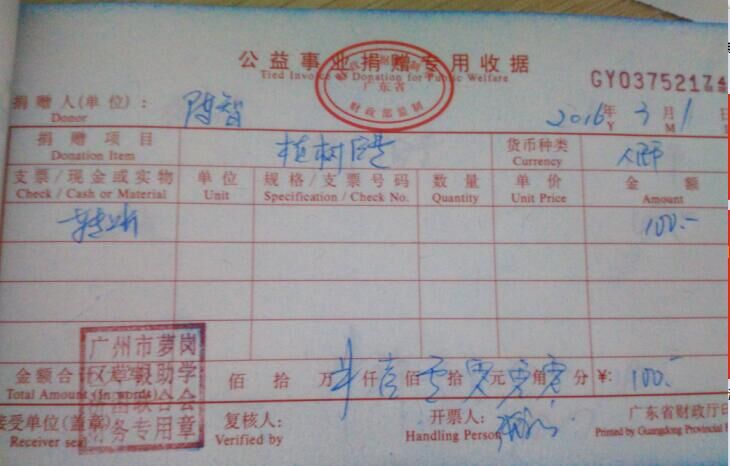 公益事业捐赠专用收据
Tied Invoice of Donation for Public Welfare
广东省
财政部监制
GY03752174
捐赠人(单位)：
Donor
陈智
2016年 3月 1日
Y M
捐赠项目
Donation Item
植树
货币种类
Currency
支票/现金或实物
Check / Cash or Material
单位
Unit
规格/支票号码
Specification / Check No.
数量
Quantity
单价
Unit Price
金额
Amount
100.-
广州市萝岗
助学
联合会
财务专用章
金额合计
Total Amount (in words)
佰 拾 万 仟 壹 佰 零 拾 零 元 零 角 零 分 ¥: 100.-
接受单位(盖章)
Receiver seal
复核人:
Verified by
开票人:
Handling Person
广东省财政厅印
Printed by Guangdong Provincial F